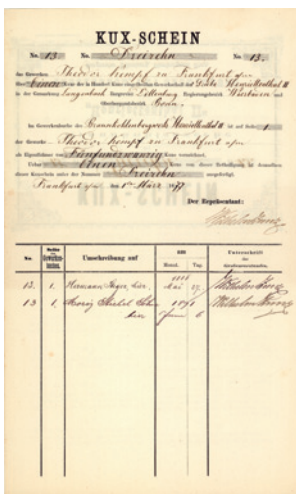 KUX-SCHEIN
No. 13 No. Dreizehn No. 13.
dem Gewerken Theodor Kumpf zu Frankfurt a/m
über Einen Kuxe der in Hundert Kuxe eingetheilten Gewerkschaft des Henriettenthal II
in der Gemarkung Langenbach Bergrevier Dillenburg Regierungsbezirk Wiesbaden und
Oberbergamtsbezirk Bonn.
Im Gewerkenbuche des Braunkohlenbergwerks Henriettenthal II ist auf Seite 1
der Gewerke Theodor Kumpf zu Frankfurt a/m
als Eigenthümer von Fünfundzwanzig Kuxe vermerkt.
Ueber Einen Kuxe von dieser Betheiligung ist demselben
dieser Kuxschein unter der Nummer Dreizehn ausgefertigt.
Frankfurt a/m den 1ten März 1877
Der Repräsentant:
No. Umschreibung auf Monat. Tag. Unterschrift
des Grubenvorstandes.
13. 1. Hermann Mayer, hier. Mai 27.
13 1. Moritz 1891
hier Juni 6